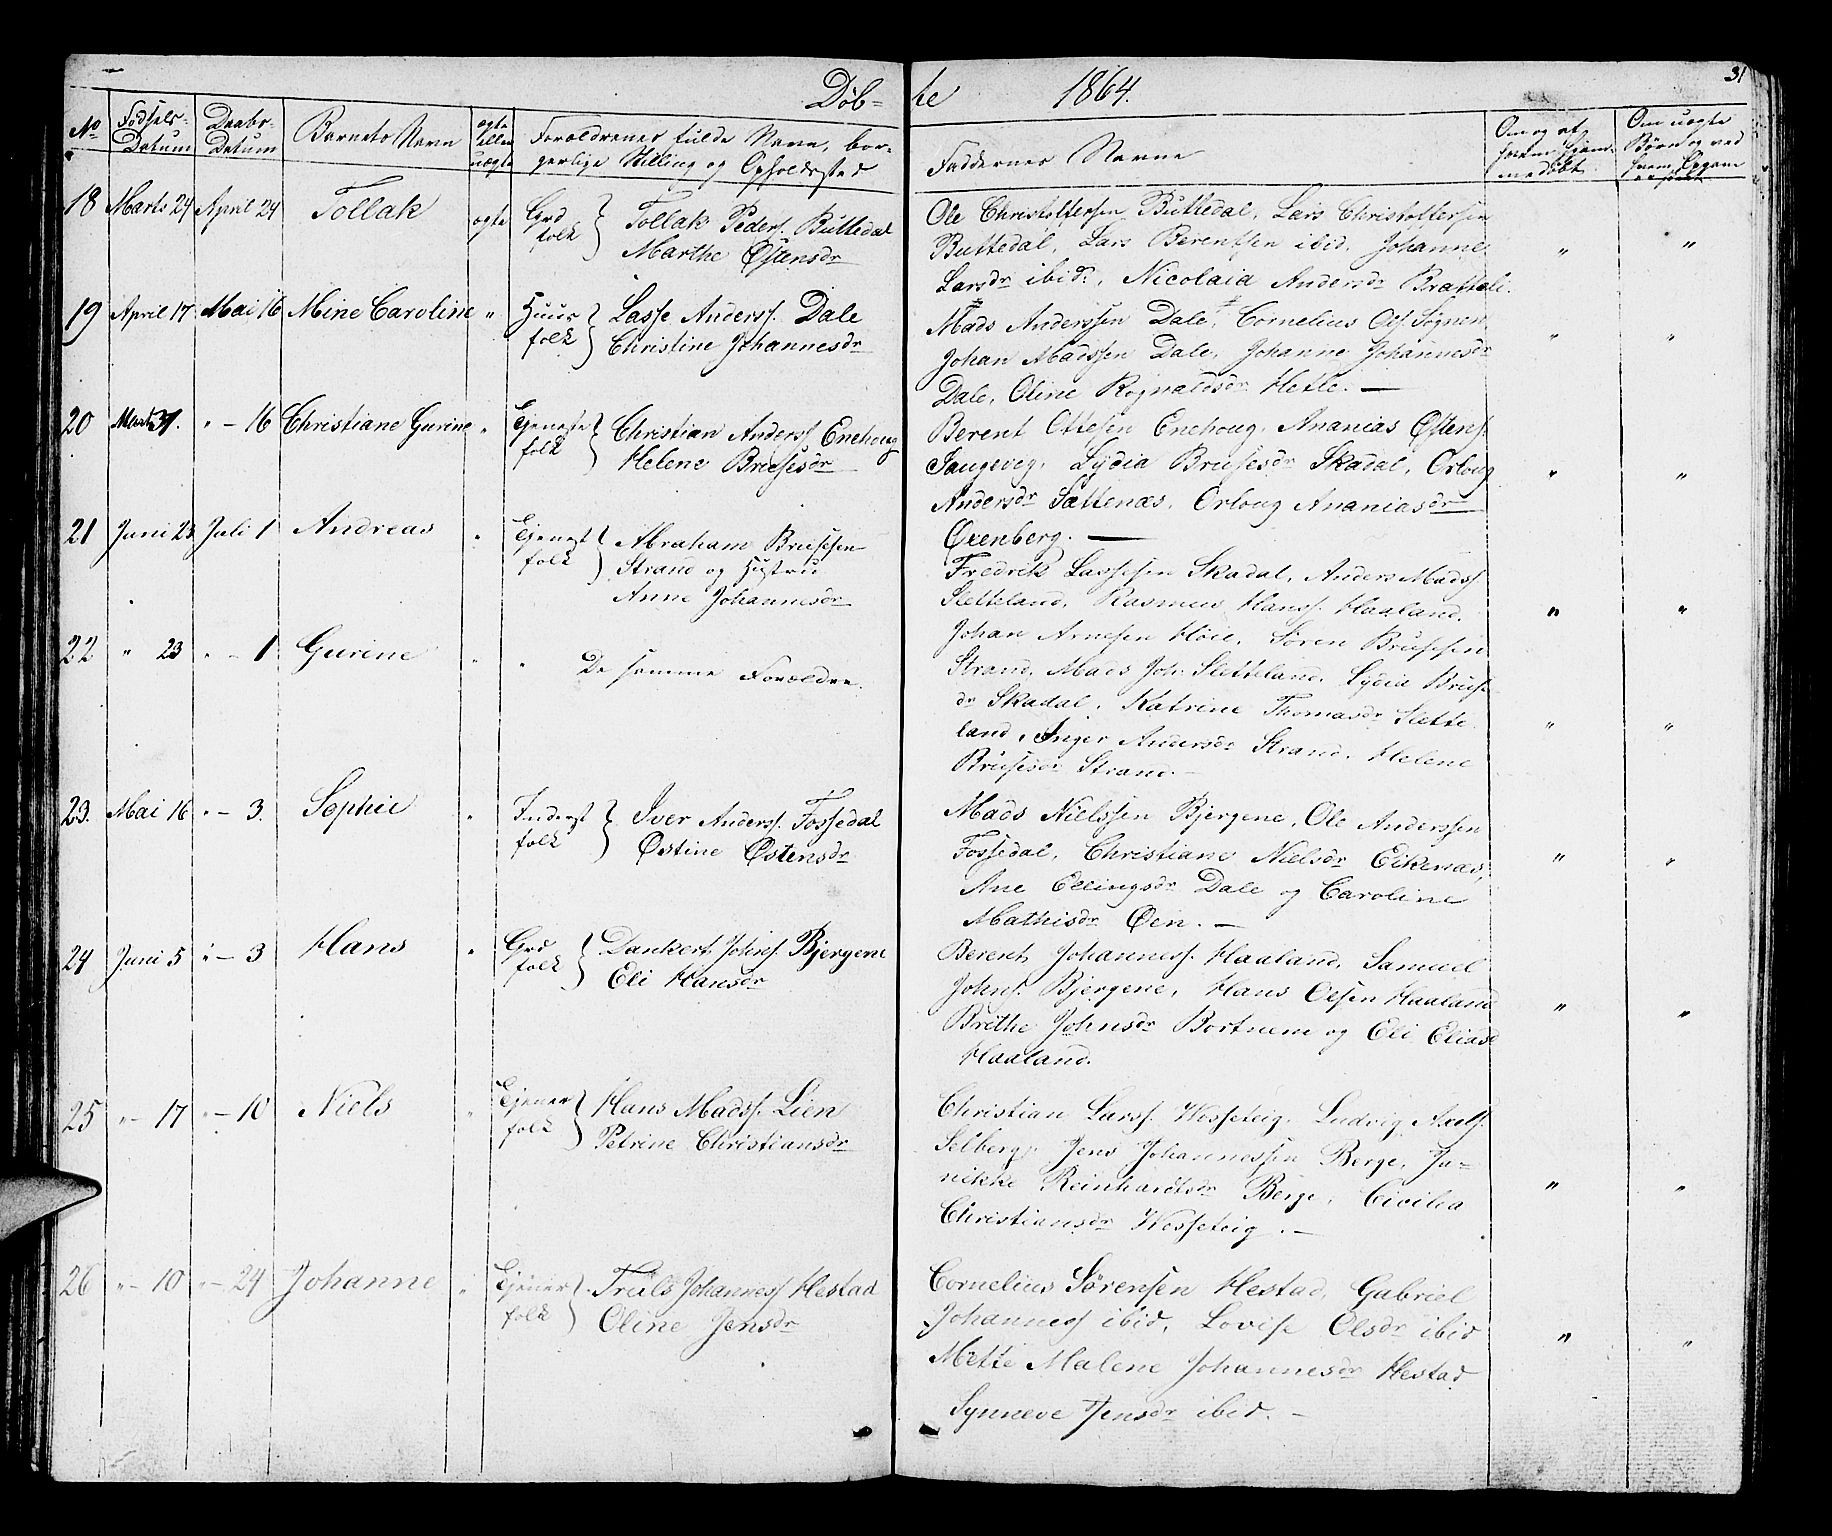 Døb- te 1864. 31
No Fødsels-Datum Daabs-Datum Barnets Navn ægte eller uægte Forældrenes fulde Navn, borgerlige Stilling og Opholdssted Faddernes Navne Om uægte Børn og ved
18 Marts 24 April 24 Tollak ægte Grd folk Tollak Peders. Buttedal
Marthe Østensdr
Ole Christoffersen Buttedal, Lars Christoffersen
Buttedal, Lars Berentsen ibid, Johanne
Larsdr ibid., Nicolaia Andersdr Bratteli. " "
19 April 17 Mai 16 Mine Caroline " Huus folk Lasse Anderss. Dale
Christine Johannesdr
Mads Anderssen Dale, Cornelius Ols. Sognen,
Johan Madssen Dale, Johanne Johannesdr
Dale, Oline Rognaldsdr Hetle. — " "
20 Marts 31. " — 16 Christiane Gurine " Tjeneste folk Christian Anderss Enehoug
Helene Brusesdr
Berent Ottesen Enehoug, Ananias Østens.
Lydia Brusesdr Skadal, Orloug
Andersdr Sættenæs, Orloug Ananiasdr
Øxenberg. — " "
21 Juni 23 Juli 1 Andreas " Tjenest folk Abraham Brusesen
Strand og Hustru
Anne Johannesdr
Fredrik Lassesen Skadal, Anders Madss
Sletteland, Rasmus Hanss. Haaland,
Johan Arnesen Høie, Søren Brusesen " "
22 " 23 " — 1 Gurine " " De samme Forældre.
Strand, Mads Joh. Sletteland, Lydia Bruse
dr Skadal, Katrine Thomasdr Slette
land, Inger Andersdr Strand, Helene
Brusesdr Strand. — " "
23. Mai 16 " — 3. Sophie " Inderst folk Iver Anderss. Fossedal
Østine Østensdr
Mads Nielssen Bjergene, Ole Anderssen
Fossedal, Christiane Nielsdr Eikenæs,
Ane Ellingsdr Dale og Caroline
Mathisdr Øen. — " "
24 Juni 5 " — 3 Hans " Grd folk Dankert Johns. Bjergene
Eli Hansdr
Berent Johanness. Haaland, Samuel
Johns. Bjergene, Hans Olsen Haaland
Brithe Johnsdr Bortnem og Eli Eliasd
Haaland. " "
25 " — 17 " — 10 Niels " Tjener folk Hans Madss. Lien
Petrine Christiansdr
Christian Larss. Hesseteig, Ludvig Axels.
Selberg, Jens Johannessen Berge, Ja-
nikke Reinhardtsdr Berge, Cicilia
Christiansdr Hesseteig. — " "
26 " — 10 " — 24 Johanne " Tjener folk Truls Johanness Hestad
Oline Jensdr
Cornelius Sørensen Hestad, Gabriel
Johanness ibid, Lovise Olsdr ibid
Mette Malene Johannesdr Hestad
Synneve Jensdr ibid. — " "